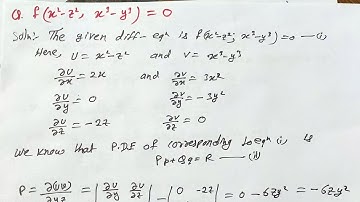 Q. f(x²-z², x³-y³) = 0
Soln:- The given diff- eqⁿ is f(x²-z², x³-y³)=0 —(i)
Here, U = x²-z² and V = x³-y³
∂U/∂x = 2x and ∂V/∂x = 3x²
∂U/∂y = 0 ∂V/∂y = -3y²
∂U/∂z = -2z ∂V/∂z = 0
we know that P.DE of corresponding to eqⁿ (i) is
Pp+Qq = R —(ii)
P = ∂(UV)/∂yz = | ∂U/∂y ∂U/∂z | = | 0 -2z | = 0 - 6zy² = -6zy²